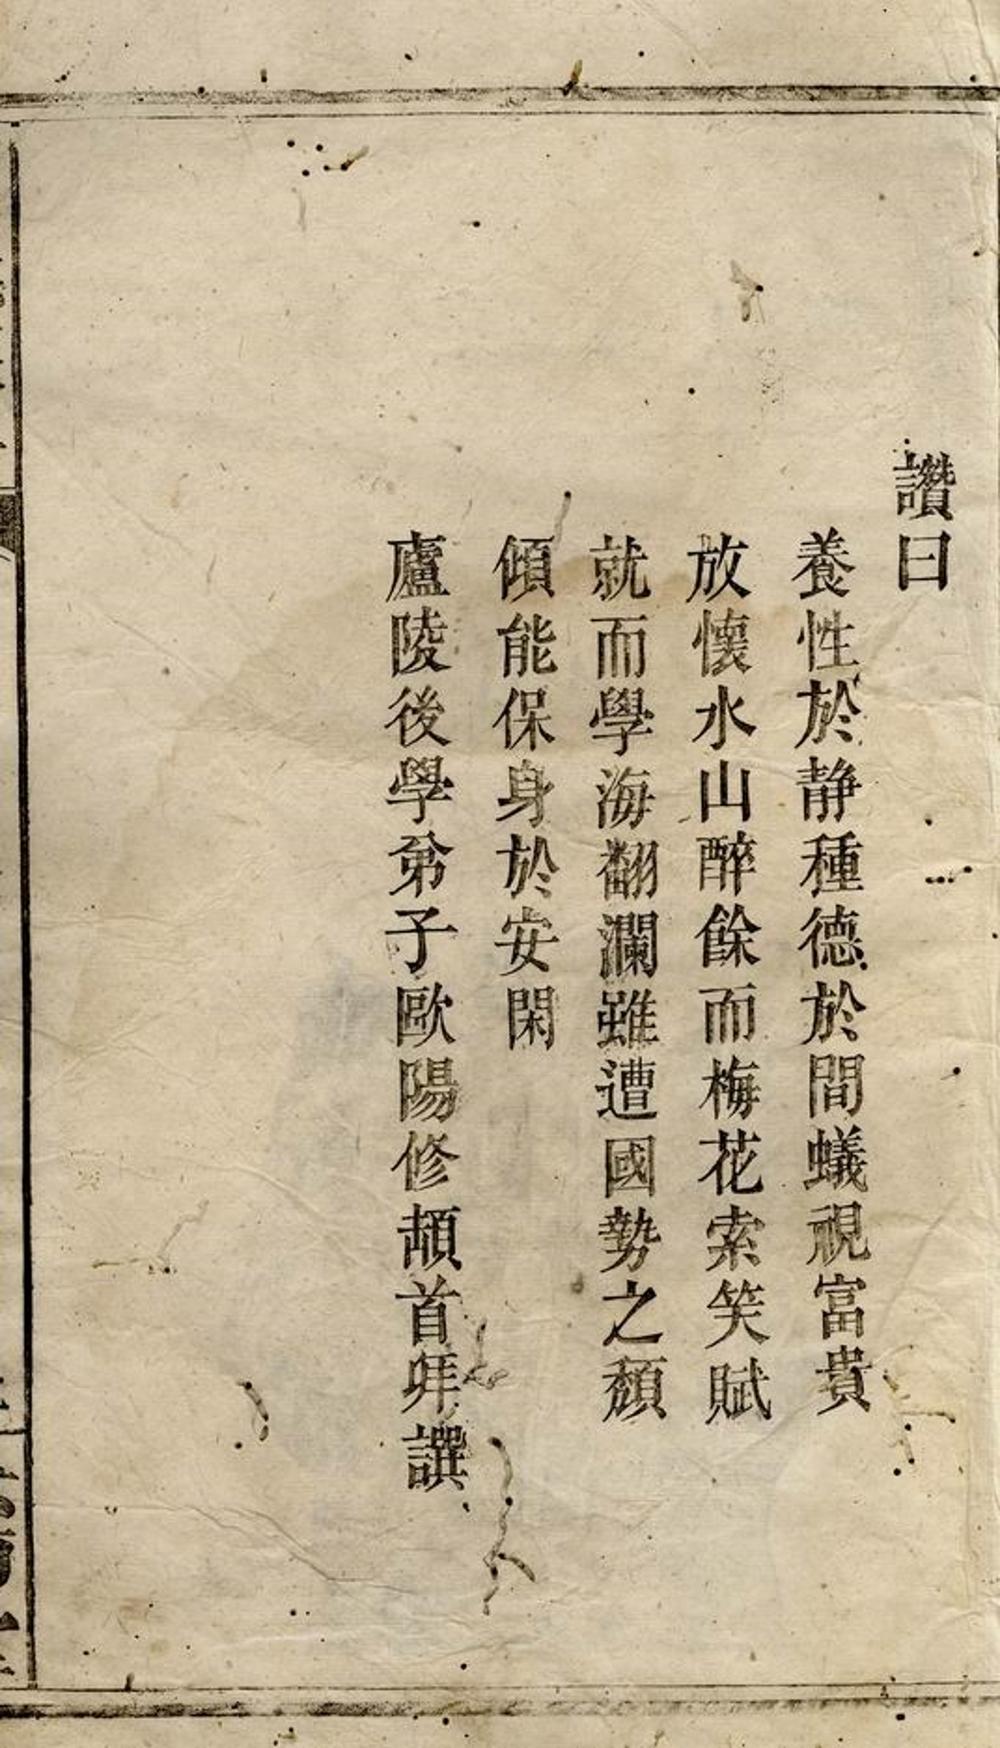 讚曰
養性於静種德於間蟻視富貴
放懷水山醉餘而梅花索笑賦
就而學海翻瀾雖遭國勢之頹
傾能保身於安閑
廬陵後學弟子歐陽修頓首拜譔